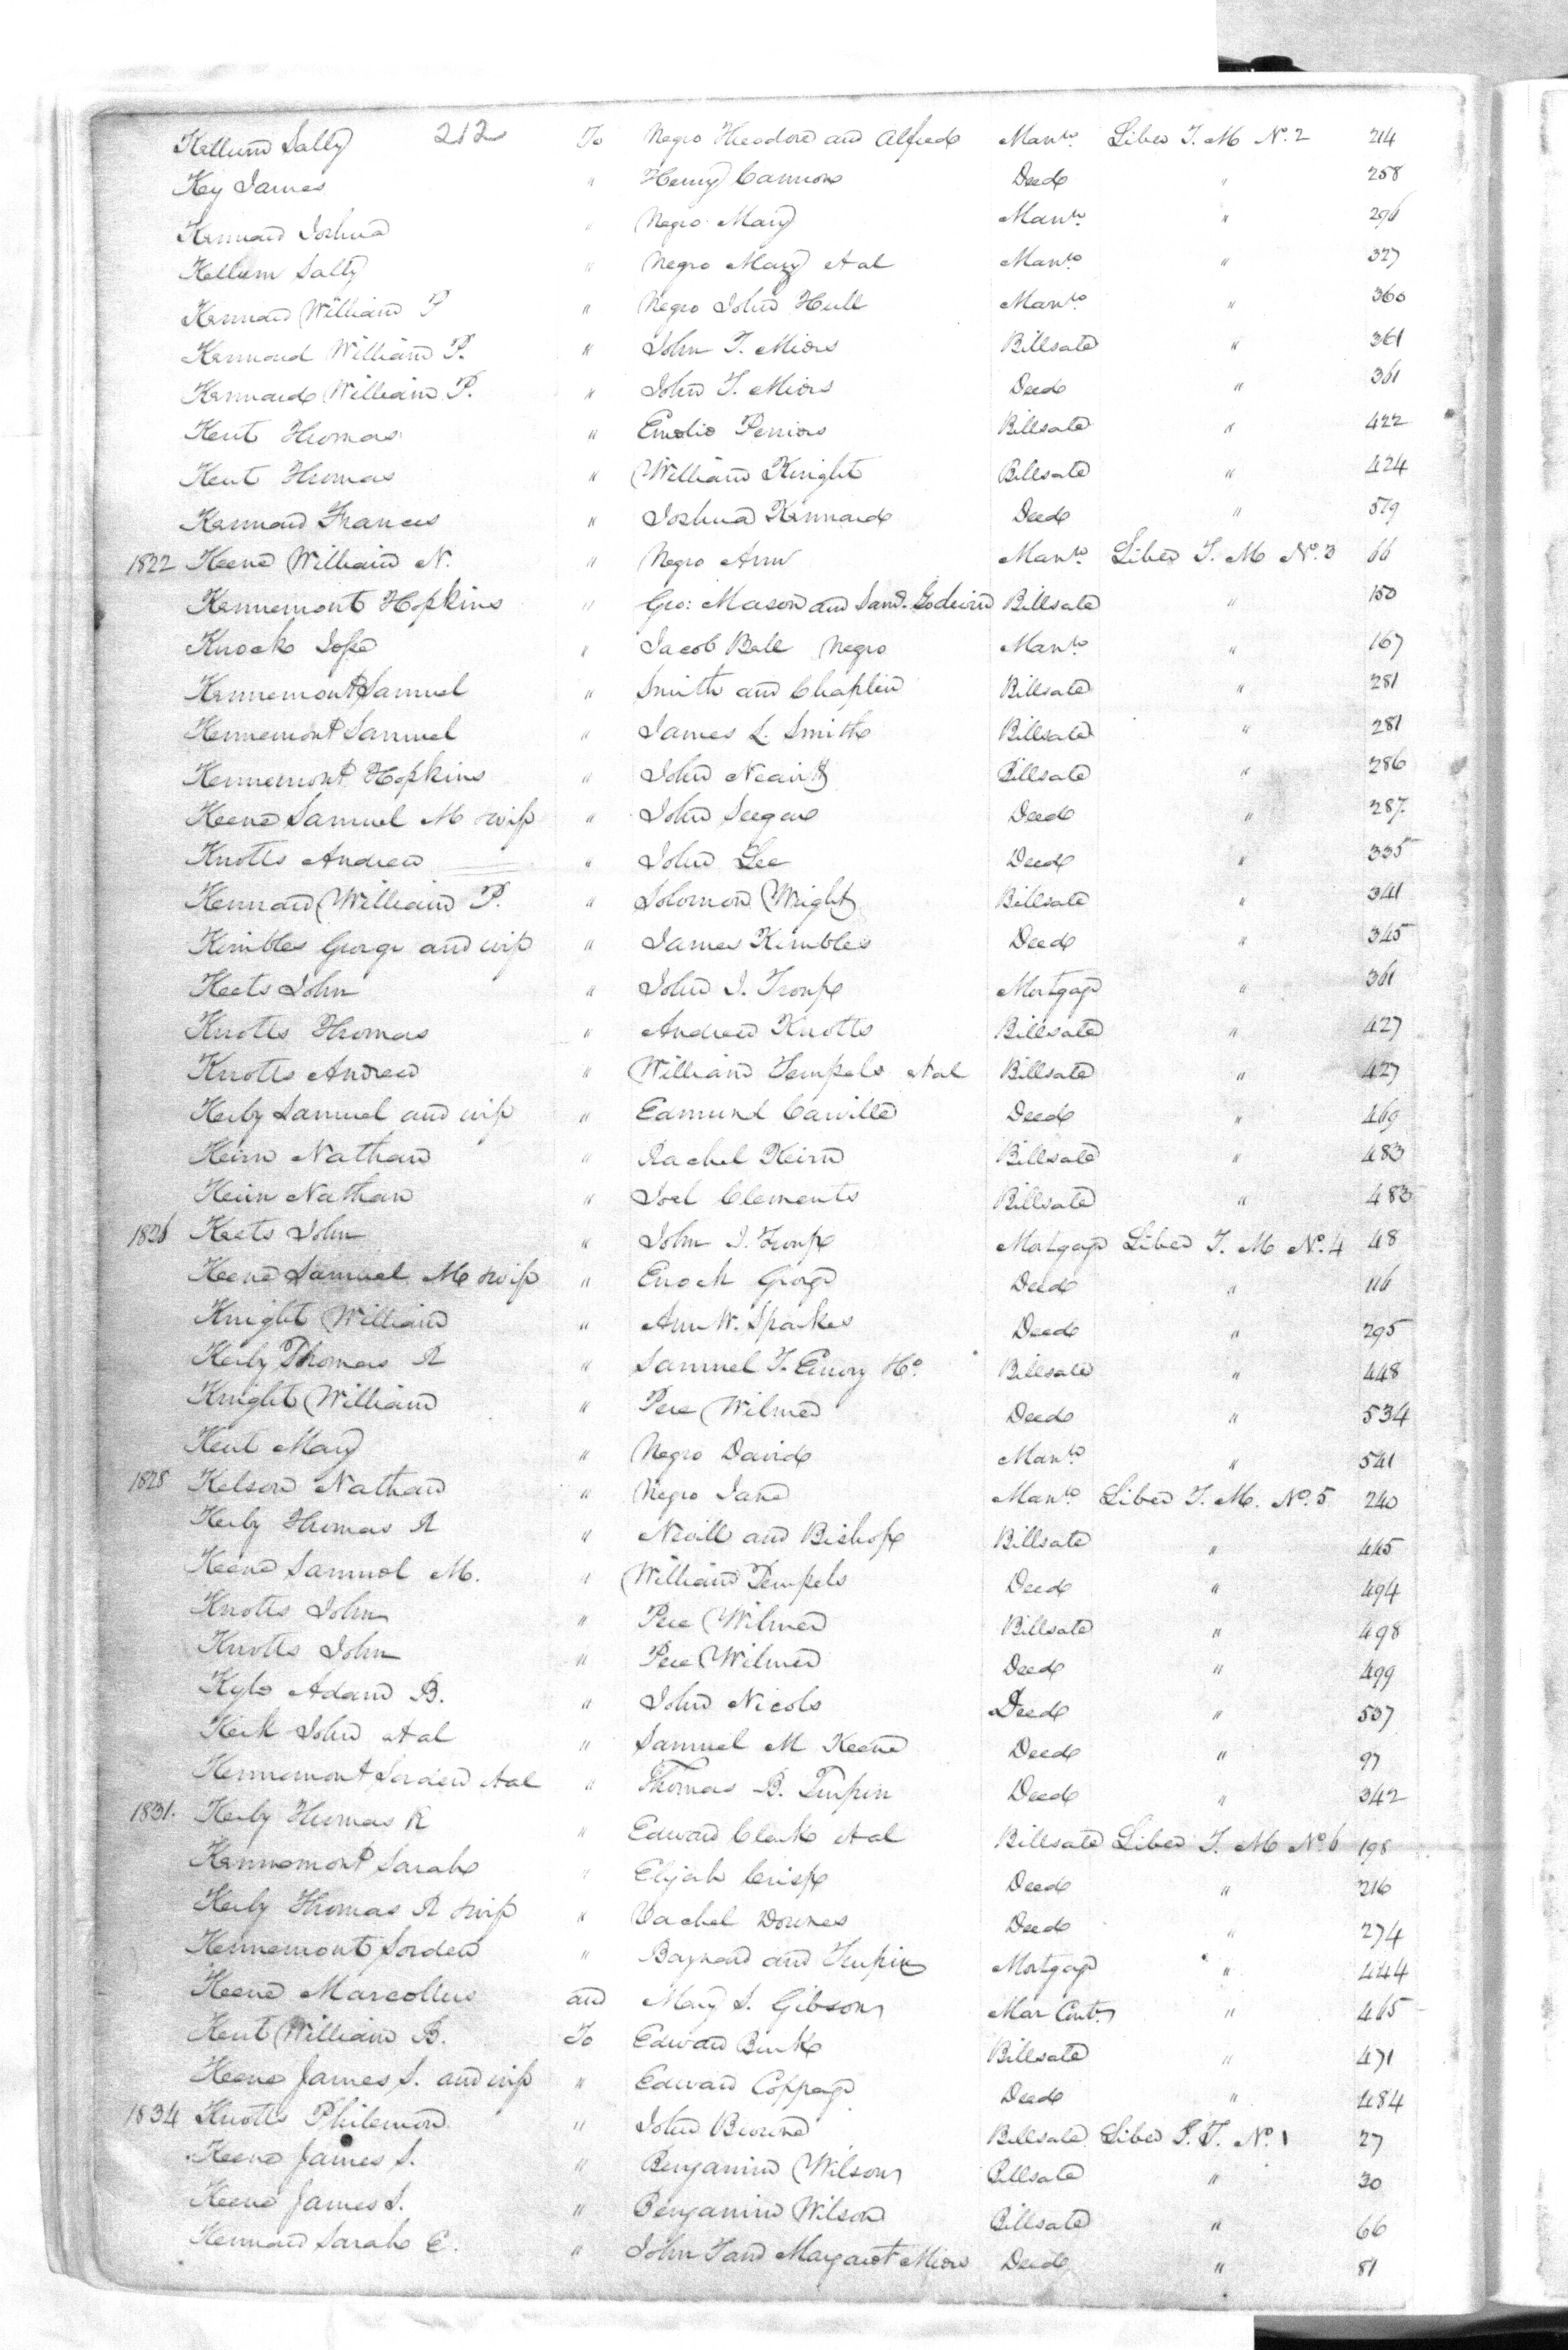 212
Kellum Sally To Negro Theodore and Alfred Man.to Liber T. M No. 2 214
Key James " Henry Cannon Deed " 258
Kennard Joshua " Negro Mary Man.to " 296
Kellum Sally " Negro Mary et al Man.to " 327
Kennard William P " Negro John Hull Man.to " 360
Kennard William P. " John T. Miers Billsale " 361
Kennard William P. " John T. Miers Deed " 361
Kent Thomas " Perrior Billsale " 422
Kent Thomas " William Knight Billsale " 424
Kennard Frances " Joshua Kennard Deed " 519
1822 Keene William N. " Negro Ann Man.to Liber T. M No. 3 66
Kennemont Hopkins " Geo: Mason and Saml. Godwin Billsale " 150
Knock Jesse " Jacob Bell Negro Man.to " 167
Kennemont Samuel " Smith and Chaplin Billsale " 281
Kennemont Samuel " James L. Smith Billsale " 281
Kennemont Hopkins " John Billsale " 286
Keene Samuel M & wife " John Seegar Deed " 287
Knotts Andrew " John Lee Deed " 335
Kennard William P. " Solomon Wright Billsale " 341
Kimbles George and wife " James Kimbles Deed " 345
Keets John " John J. Troup Mortgage " 361
Knotts Thomas " Andrew Knotts Billsale " 427
Knotts Andrew " William Tempels et al Billsale " 427
Kerby Samuel and wife " Edmund Carville Deed " 469
Keirn Nathan " Rachel Keirn Billsale " 483
Keirn Nathan " Joel Clements Billsale " 483
1826 Keets John " John J. Troup Mortgage Liber T. M No. 4 48
Keene Samuel M & wife " Enoch George Deed " 116
Knight William " Ann W. Sparkes Deed " 295
Kerby Thomas R " Samuel T. Emory Billsale " 448
Knight William " Pere Wilmer Deed " 534
Kent Mary " Negro David Man.to " 541
1828 Kelson Nathan " Negro Jane Man.to Liber T. M. No. 5 240
Kerby Thomas R " Nevill and Bishop Billsale " 445
Keene Samuel M. " William Tempels Deed " 494
Knotts John " Pere Wilmer Billsale " 498
Knotts John " Pere Wilmer Deed " 499
Kyle Adam B. " John Nicols Deed " 537
Kerk John et al " Samuel M Keene Deed " 97
Kennemont Sorden et al " Thomas B. Turpin Deed " 342
1831. Kerby Thomas R " Edward Clark et al Billsale Liber T. M No. 6 198
Kennemont Sarah " Elijah Crisp Deed " 216
Kerby Thomas R & wife " Vachel Downes Deed " 274
Kennemont Sorden " Baynard and Turpin Mortgage " 444
Keene Marcellus and Mary S. Gibson Mar Cont. " 465
Kent William B. To Edward Burke Billsale " 471
Keene James S. and wife " Edward Coppage Deed " 484
1834 Knotts Philemon " John Browne Billsale Liber J. T. No. 1 27
Keene James S. " Benjamin Wilson Billsale " 30
Keene James S. " Benjamin Wilson Billsale " 66
Kennard Sarah E. " John T and Margaret Miers Deed " 81